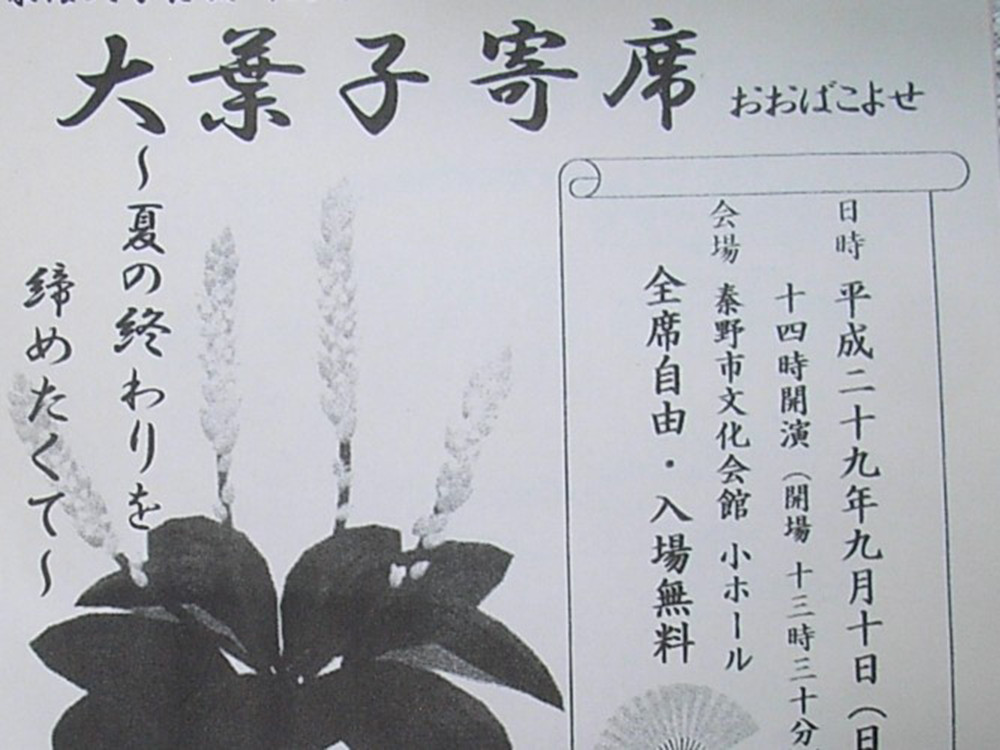 大葉子寄席 おおばこよせ
～夏の終わりを
締めたくて～
日時 平成二十九年九月十日（日
十四時開演（開場 十三時三十分
会場 秦野市文化会館 小ホール
全席自由・入場無料